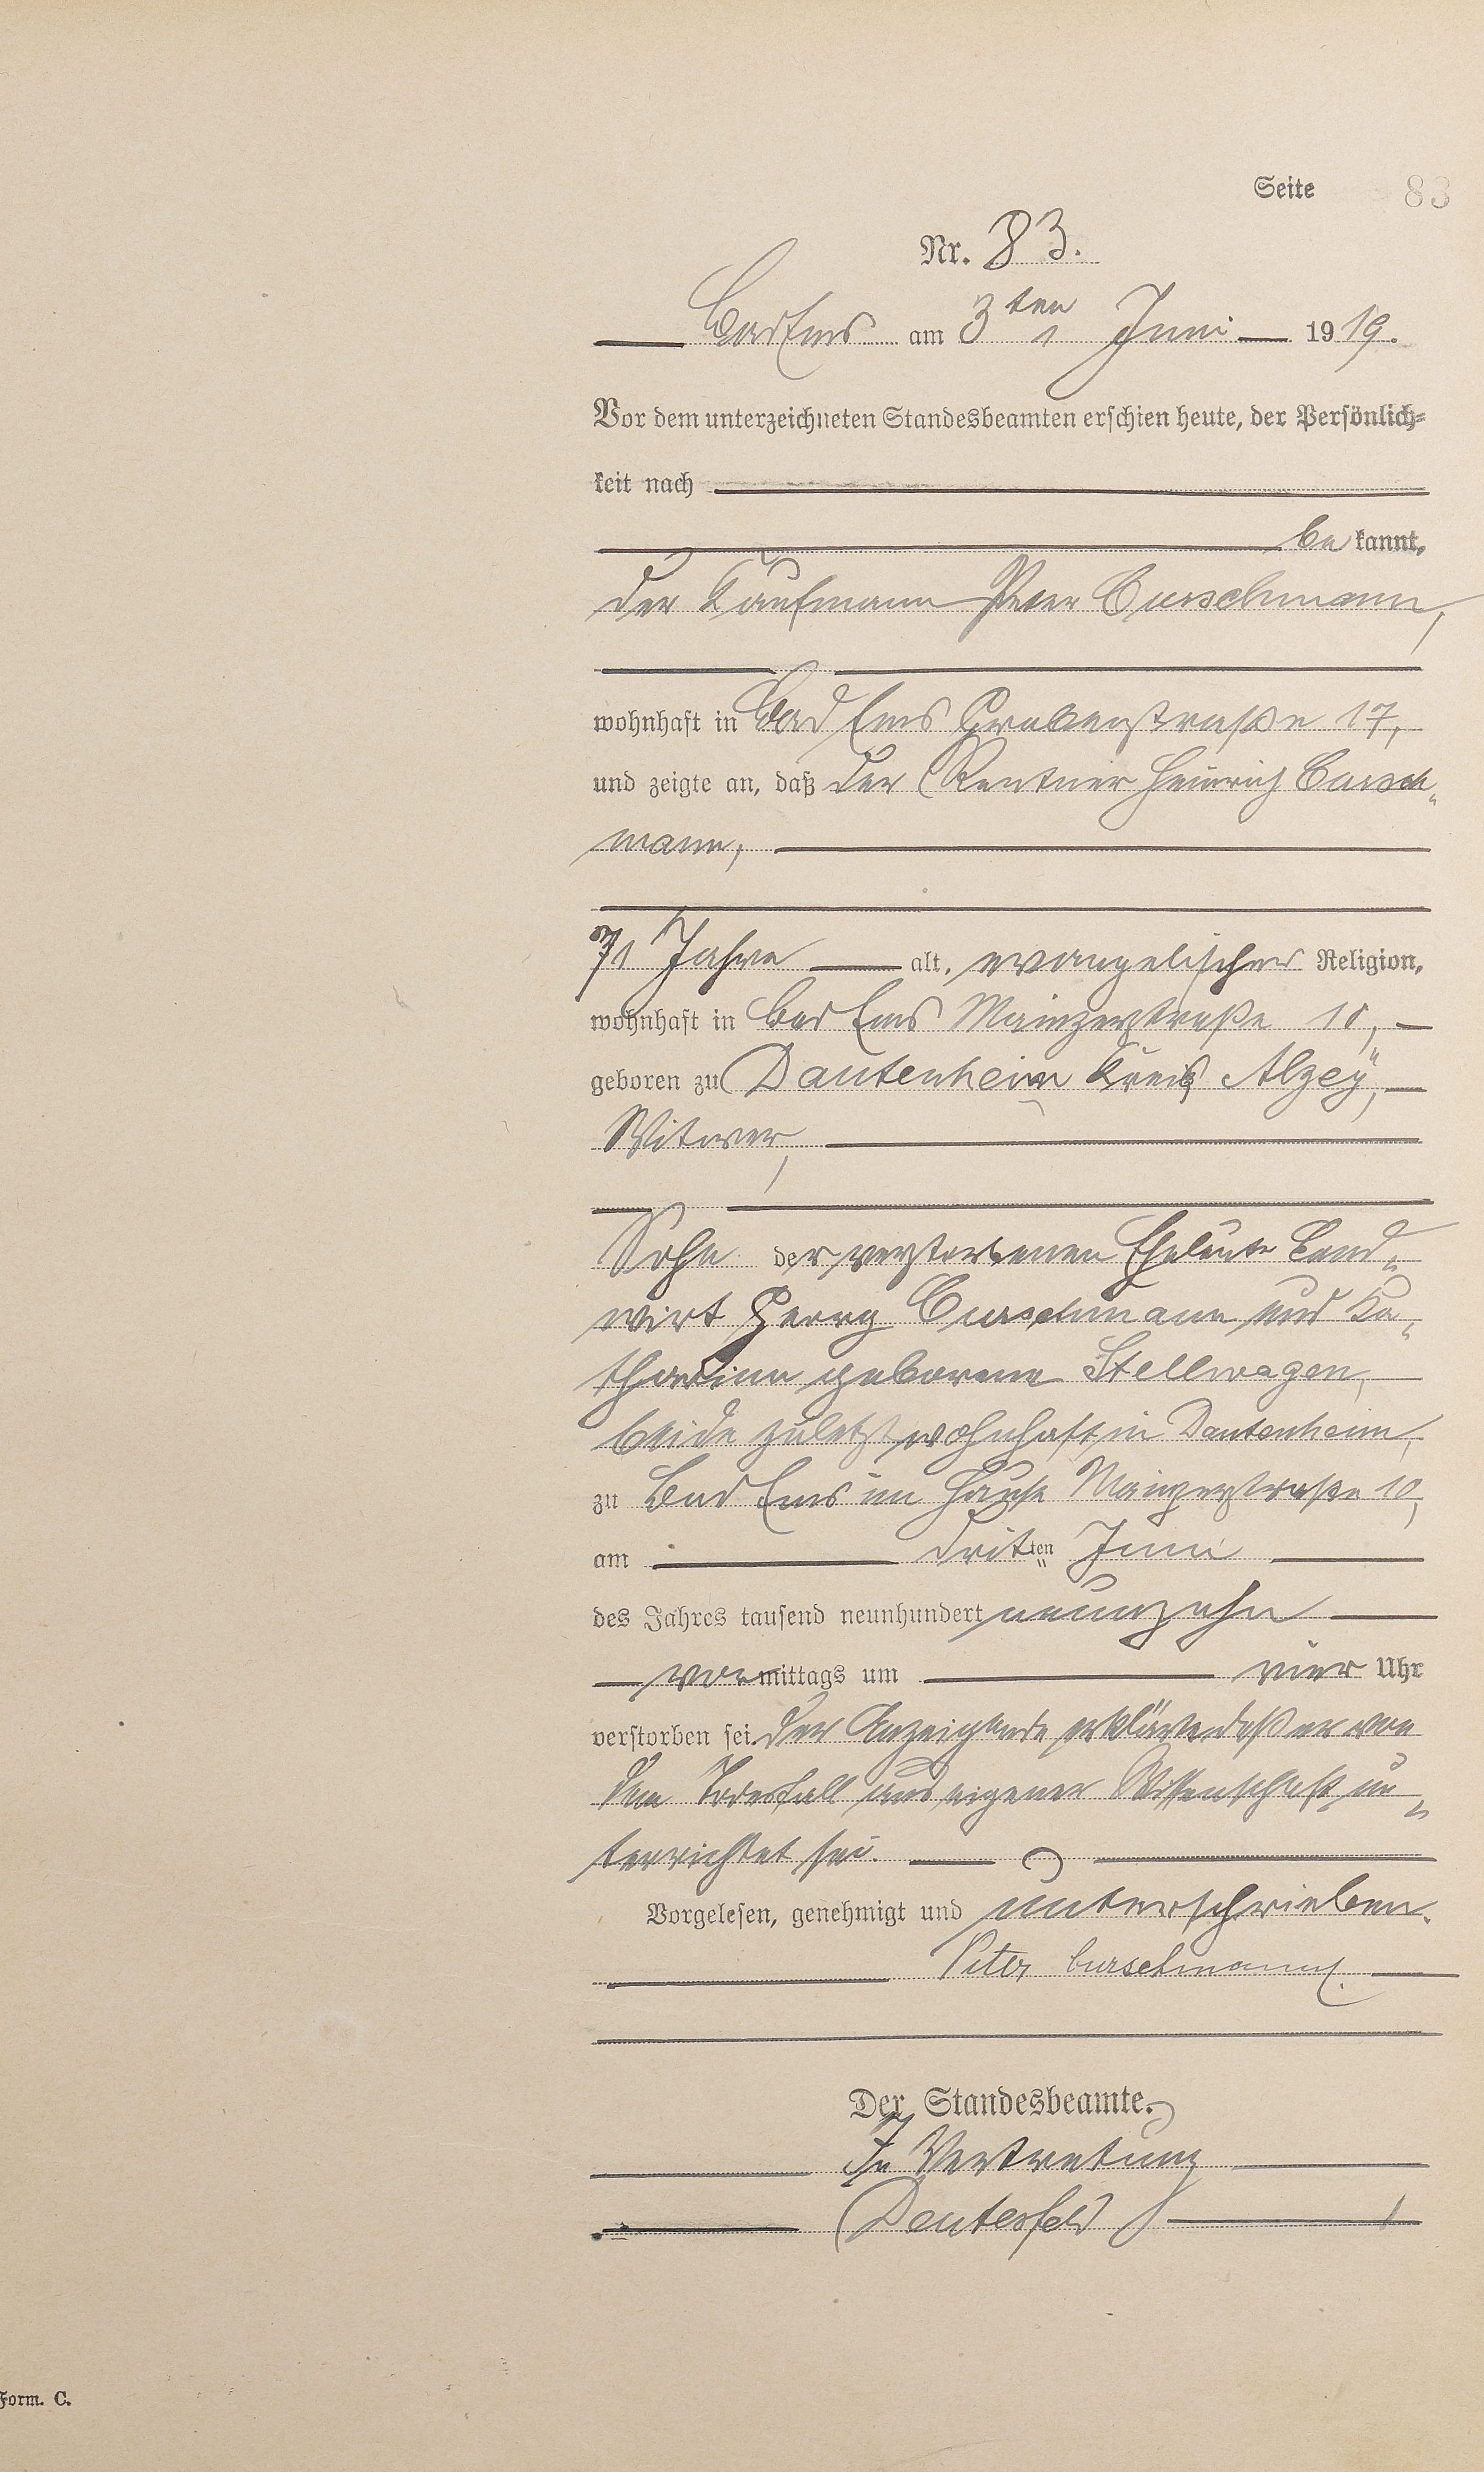 Seite 83
Nr. 83.
Bad Ems am 3ten Juni 1919.
Vor dem unterzeichneten Standesbeamten erschien heute, der Persönlich-
keit nach
be kannt,
der Kaufmann Peter Curschmann,
wohnhaft in Bad Ems Grabenstraße 17,
und zeigte an, daß der Rentner Heinrich Cursch-
mann,
71 Jahre alt, evangelischer Religion,
wohnhaft in Bad Ems Mainzerstraße 10,
geboren zu Dautenheim Kreis Alzey,
Witwer,
Sohn der verstorbenen Eheleute Land-
wirt Georg Curschmann und Ka-
tharina geborene Stellwagen,
beide zuletzt wohnhaft in Dautenheim,
zu Bad Ems im Hause Mainzerstraße 10,
am dritten Juni
des Jahres tausend neunhundert neunzehn
vormittags um vier Uhr
verstorben sei. Der Anzeigende erklärte, daß er von
dem Todesfall aus eigener Wissenschaft un-
terrichtet sei.
Vorgelesen, genehmigt und unterschrieben.
Peter Curschmann.
Der Standesbeamte.
In Vertretung
Form. C.